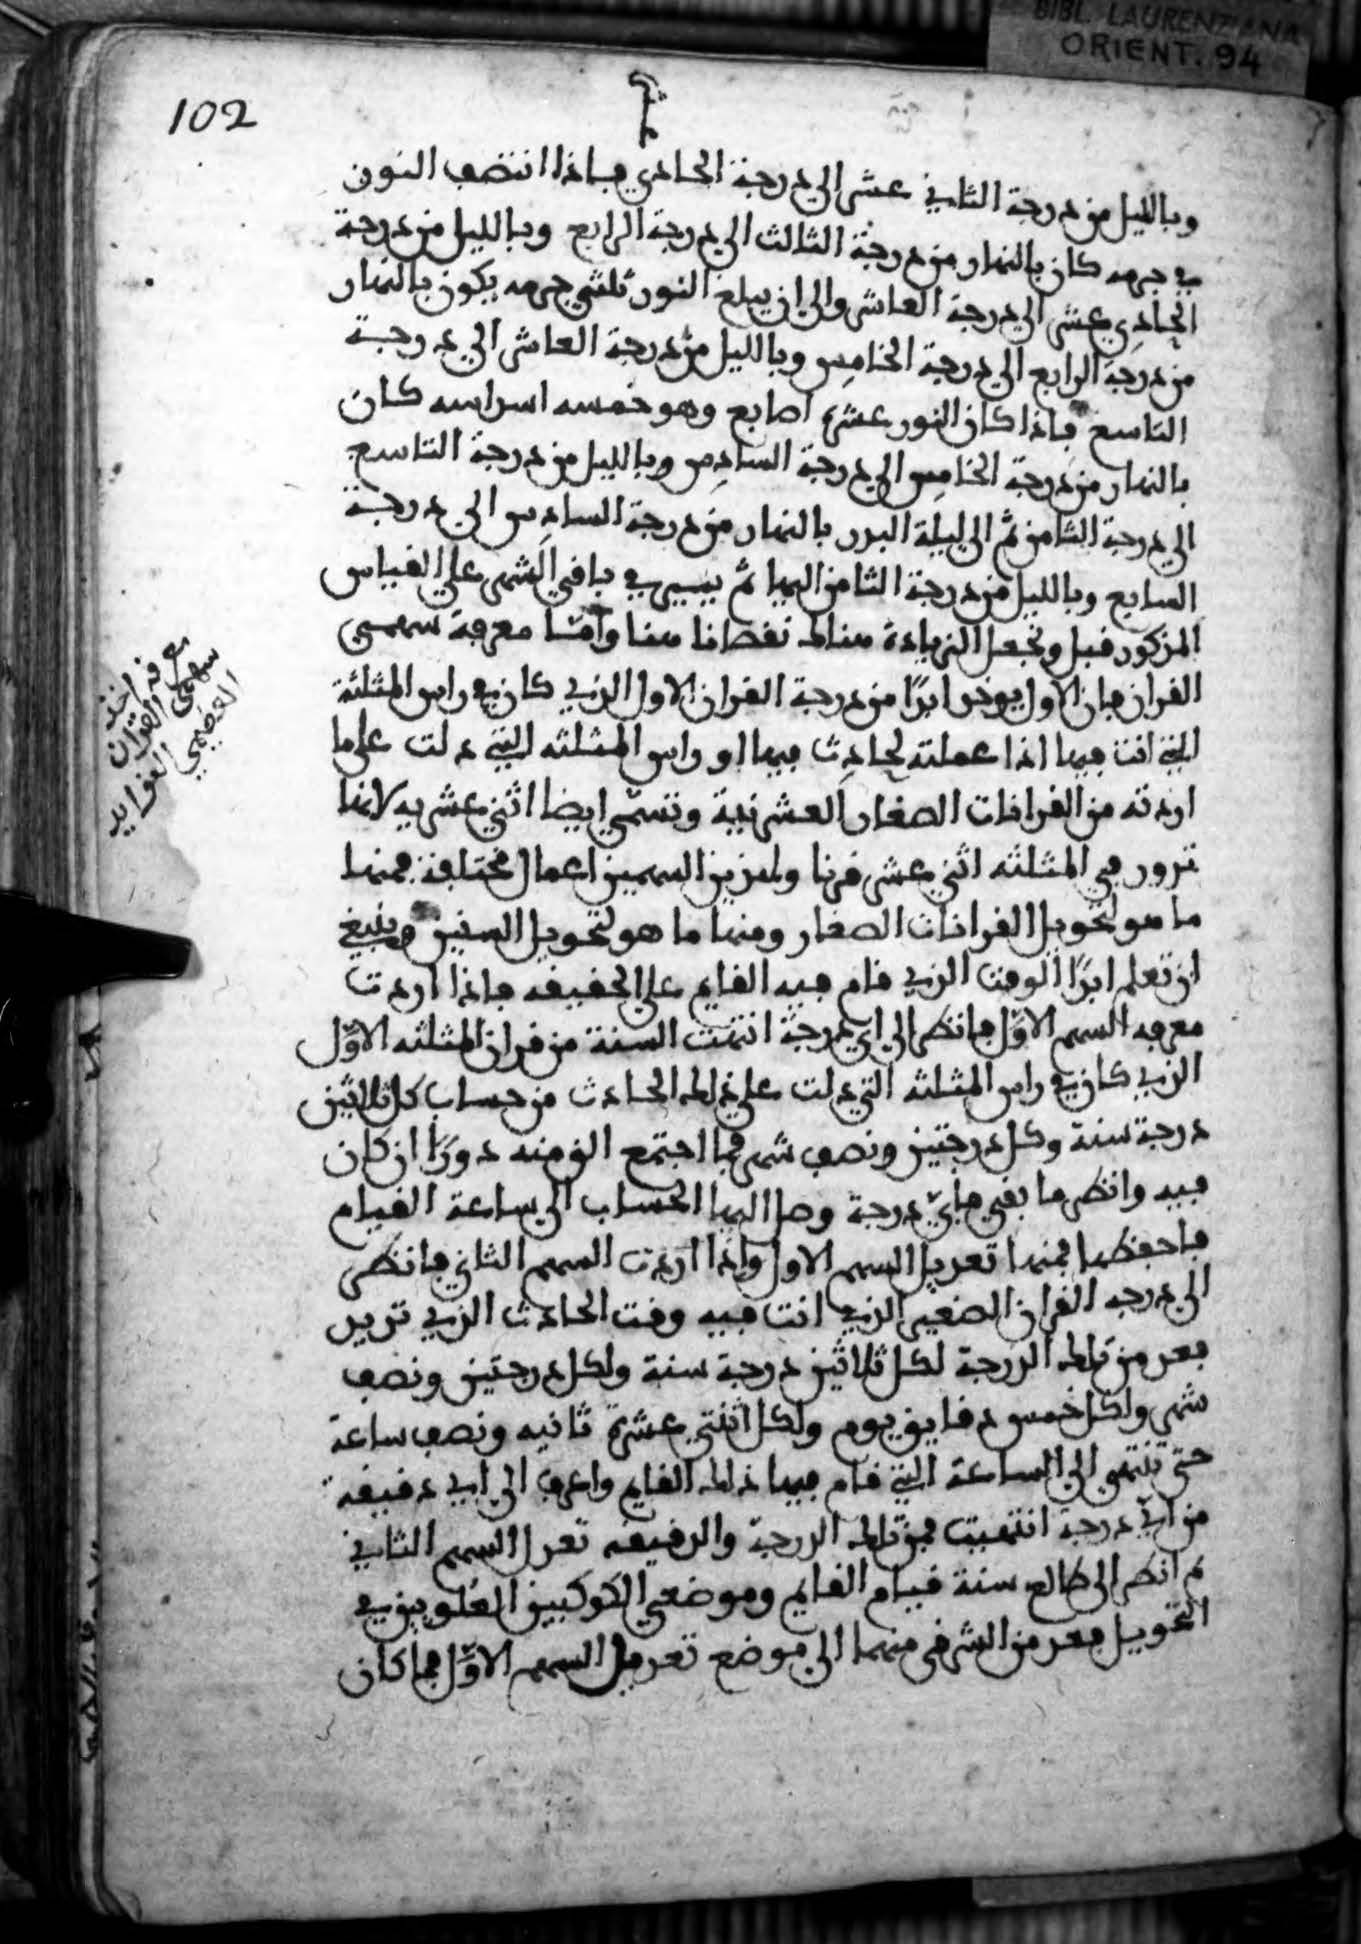 BIBL. LAURENZIANA
ORIENT. 94
102
وبالليل من درجة الثاني عشر الى درجة الحادي فاذا انتصف النون
في جرمه كان بالنهار من درجة الثالث الى درجة الرابع وبالليل من درجة
الحادي عشر الى درجة العاشر والى ان يبلغ النور ثلثي جرمه يكون بالنهار
من درجة الرابع الى درجة الخامس وبالليل من درجة العاشر الى درجة
التاسع فاذا كان النور عشرة اصابع وهو خمسه اسداسه كان
بالنهار من درجة الخامس الى درجة السادس وبالليل من درجة التاسع
الى درجة الثامن ثم الى ليلة البدر بالنهار من درجة السادس الى درجة
السابع وبالليل من درجة الثامن اليها ثم يسير في باقي الشهر على القياس
المذكور قبل وتجعل الزيادة هنالك نقصانا هنا وأمّا معرفة سهمي
القران فان الاول يوخذ ابدًا من درجة القران الاول الذي كان في راس المثلثة
التي انت فيها اذا عملته لحادث فيها او راس المثلثه التي دلت على ما
اردته من القرانات الصغار العشرنيية وتسمّى ايضا اثني عشريه لانها
تدور في المثلثه اثني عشر قرنا ولهذين السهمين اعمال مختلفة فمنها
ما هو لتحويل القرانات الصغار ومنها ما هو لتحويل السنين فينبغي
ان تعلم ابدًا الوقت الذي قام فيه القايم على الحقيقه فاذا اردت
معرفه السهم الاوّل فانظر الى اي درجة انتهت السنة من قران المثلثه الاوّل
الذي كان في راس المثلثه التي دلت على ذلك الحادث من حساب كل ثلاثين
درجة سنة وكل درجتين ونصف شهر فما اجتمع الق منه دورًا ان كان
فيه وانظر ما بقي فايّ درجة وصل اليها الحساب الى ساعة القيام
فاحفظها فمنها تعديل السهم الاول واذا اردت السهم الثاني فانظر
الى درجه القران الصغير الذي انت فيه وقت الحادث الذي تريد
فعد من تلك الدرجة لكل ثلاثين درجة سنة ولكل درجتين ونصف
شهر ولكل خمس دقايق يوم ولكل اثنتي عشرة ثانيه ونصف ساعة
حتى تنتهي الى الساعة التي قام فيها ذلك القايم واعرف الى اي دقيقه
من ايّ درجة انتهيت فمن تلك الدرجة والدقيقه تعدل السهم الثاني
ثم انظر الى طالع سنة قيام القايم وموضعي الكوكبين العُلويين في
التحويل فعد من الشرقي منهما الى موضع تعديل السهم الاوّل فما كان
معرفة اخذ
سهمي القران
العضيمي الفوايد